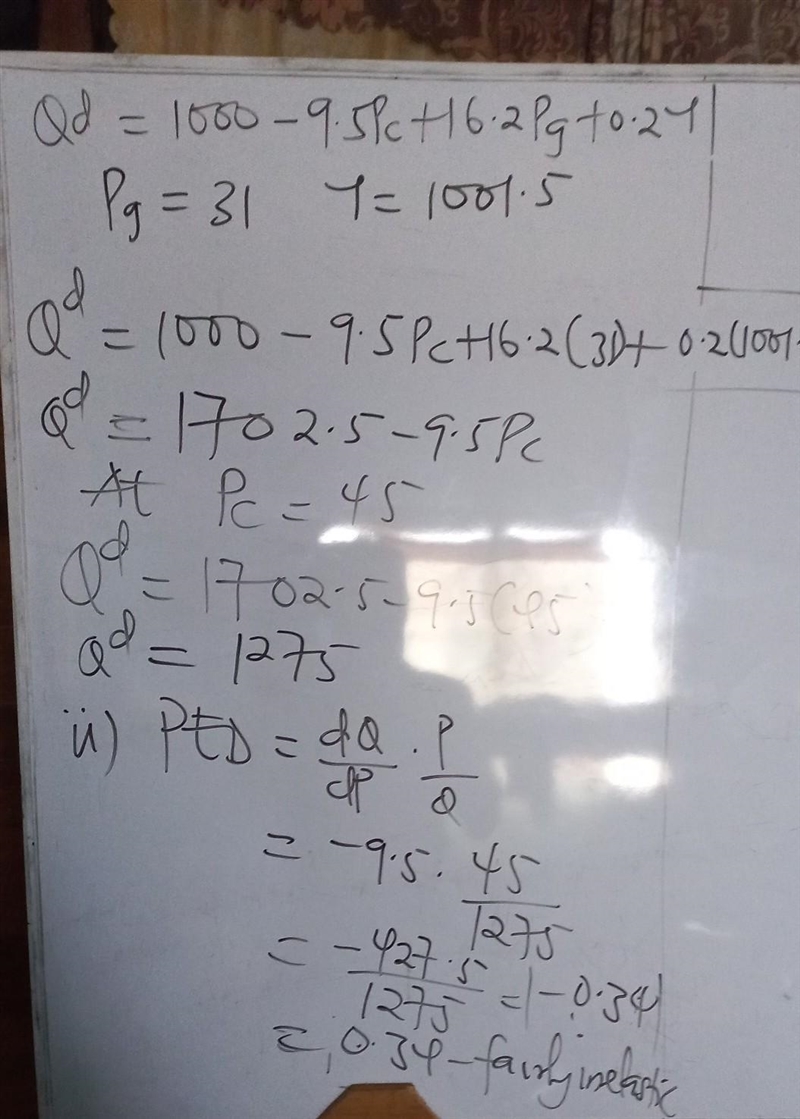 Qd = 1000 - 9.5Pc + 16.2Pg + 0.2Y
Pg = 31 Y = 1001.5
Q^d = 1000 - 9.5Pc + 16.2(31) + 0.2(1001.
Q^d = 1702.5 - 9.5Pc
At Pc = 45
Q^d = 1702.5 - 9.5(45
Q^d = 1275
ii) PED = dQ/dP . P/Q
= -9.5 . 45/1275
= -427.5/1275 = |-0.34|
= 0.34 - fairly inelastic